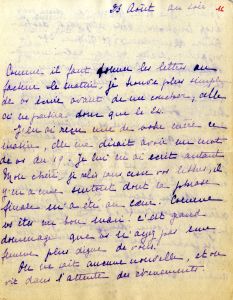 23 Août au soir
Comme il faut donner les lettres au
facteur le matin, je trouve plus simple
de vs écrire avant de me coucher, celle
ci ne partira donc que le 24.
J'en ai reçu une de votre mère ce
matin, elle me disait avoir un mot
de vs du 19. Je lui ai écrit aussitôt
Mon chéri je relis sans cesse vos lettres, il
y en a une, surtout dont la phrase
finale m'a été au cœur. Comme
vs êtes un bon mari! c'est grand
dommage que vs n'ayez pas une
femme plus digne de vous.
On ne sait aucune nouvelle, et on
vit dans l'attente des événements.